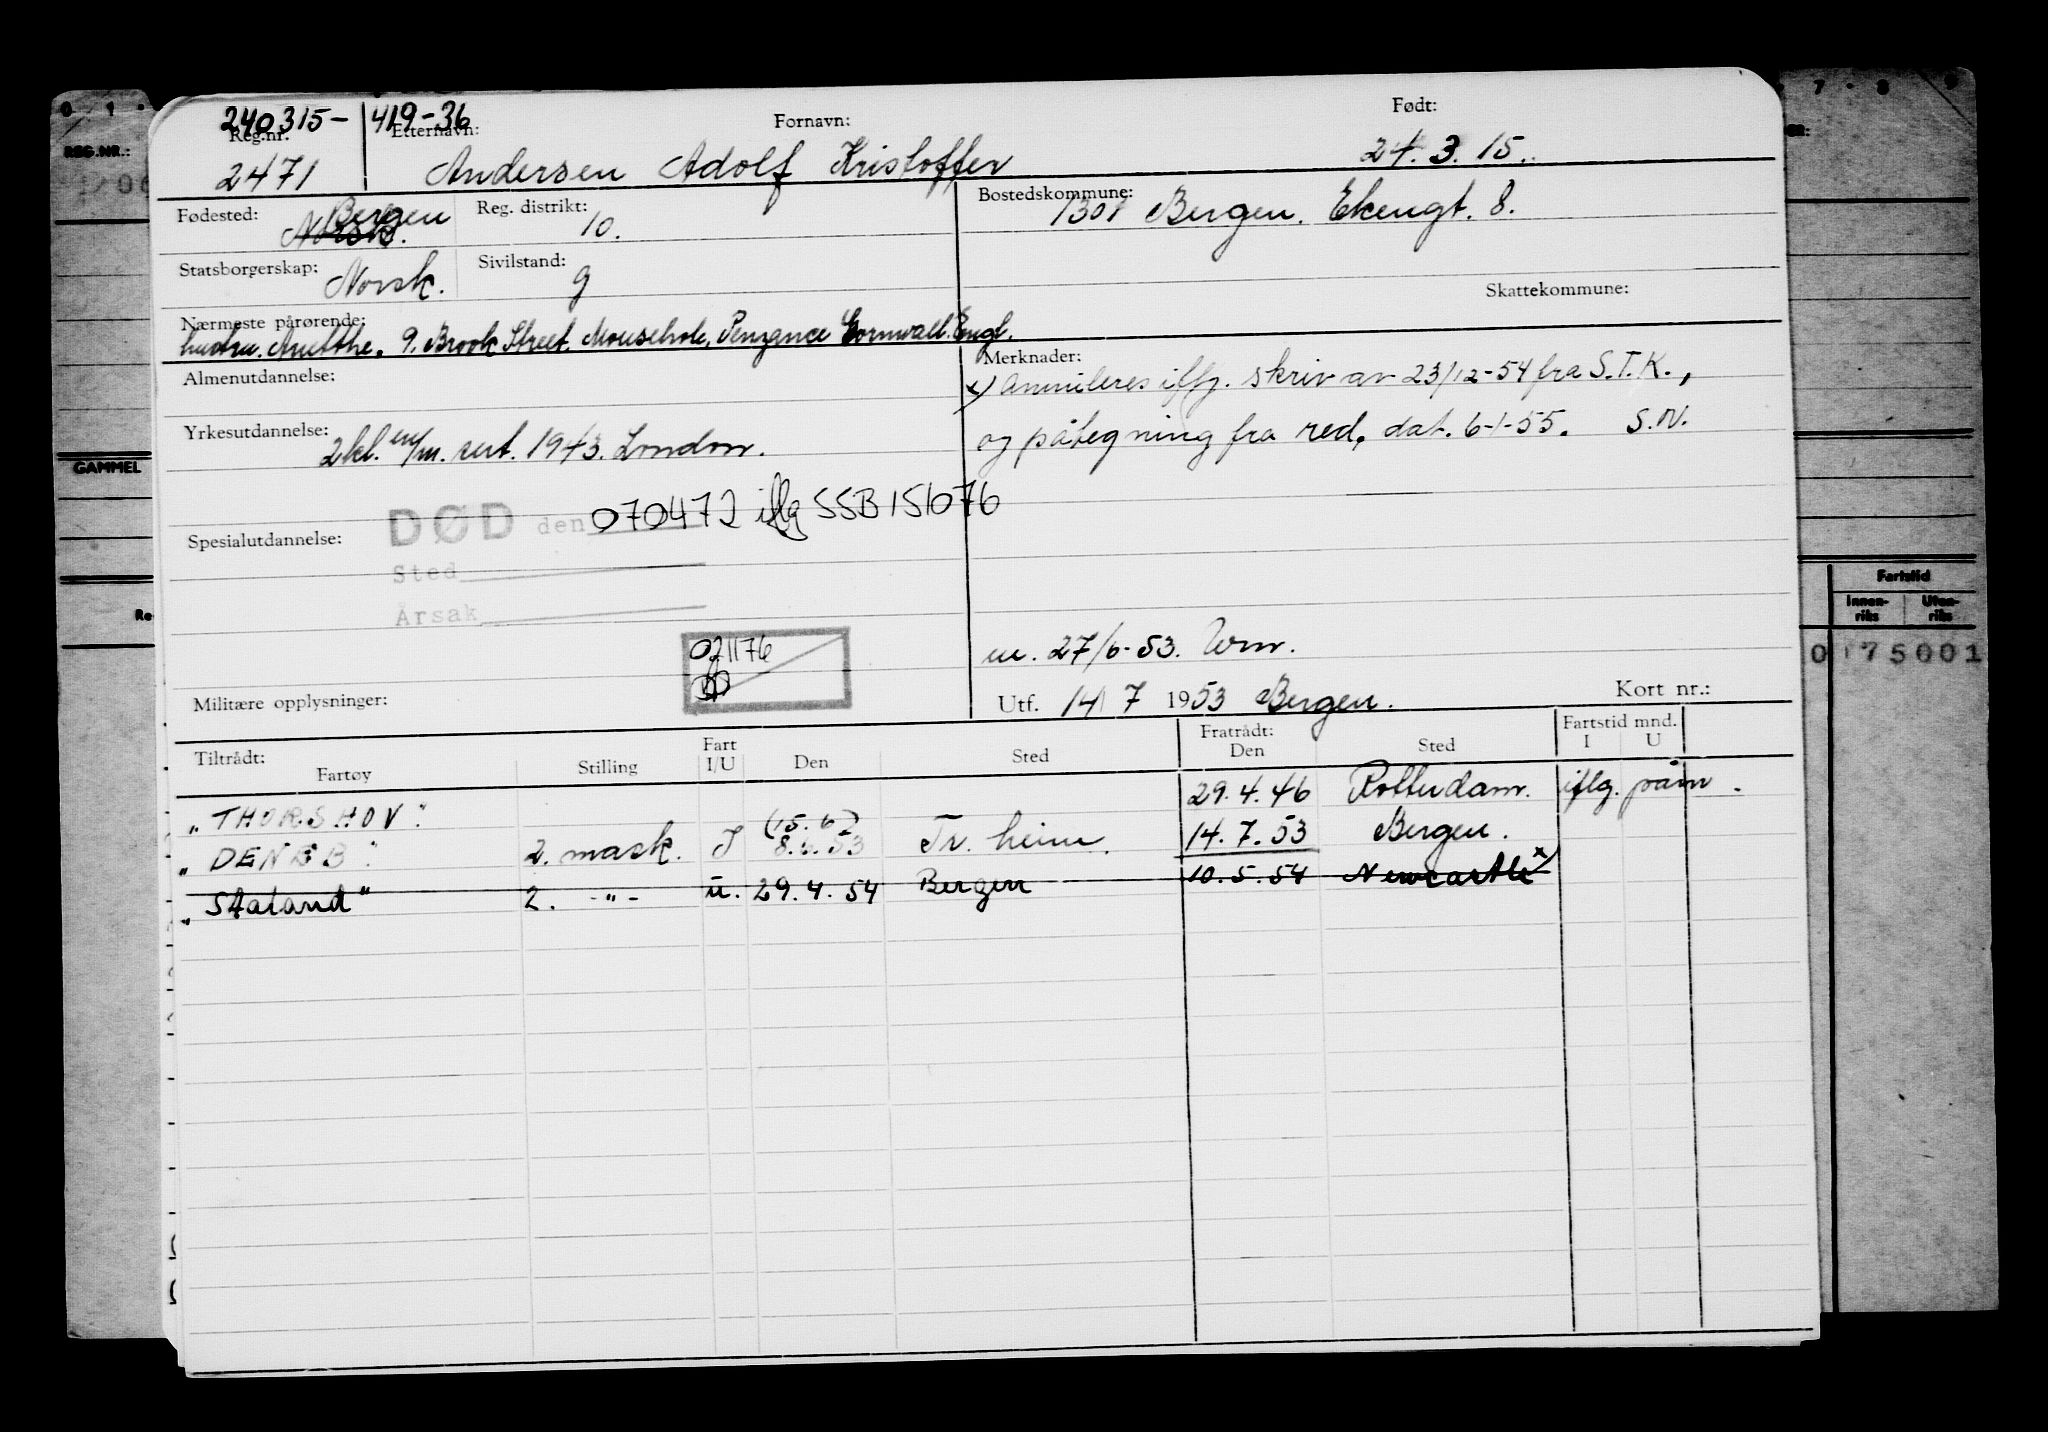 240315- 419-36
Reg.nr. Etternavn: Fornavn: Født:
2471 Andersen Adolf Kristoffer 24. 3. 15.
Fødested: Bergen Norsk. Reg. distrikt: 10. Bostedskommune: 1301 Bergen. Ekengt. 8.
Statsborgerskap: Norsk. Sivilstand: g
Skattekommune:
Nærmeste pårørende:
hustru. 9. Brook Street. Mousehole, Penzance Cornwall. Engl.
Merknader:
x) Annuleres iflg. skriv av 23/12-54 fra S.T.K.,
og påtegning fra red, dat. 6-1-55. S.N.
Almenutdannelse:
Yrkesutdannelse: 2 kl. sert. 1943. London.
DØD den 070472 iflg SSB 151076
Spesialutdannelse:
Sted
Årsak
021176
m. 27/6-53.
Militære opplysninger:
Utf. 14/7 1953 Bergen. Kort nr.:
Tiltrådt: Fratrådt: Fartstid mnd.
Fartøy Stilling Fart I/U Den Sted Den Sted I U
"THORSHOV" 29.4.46 Rotterdam. iflg. påm.
(15.6)
"DENEB" 2. mask. I 8.6.53 Tr. heim. 14.7.53 Bergen.
"Staland" 2. -"- u. 29.4.54 Bergen 10.5.54 Newcastle x)
0 1
REG.NR.:
GAMMEL
Re
7 - 8 9
Fartstid
Innen-riks Uten-riks
0 175001